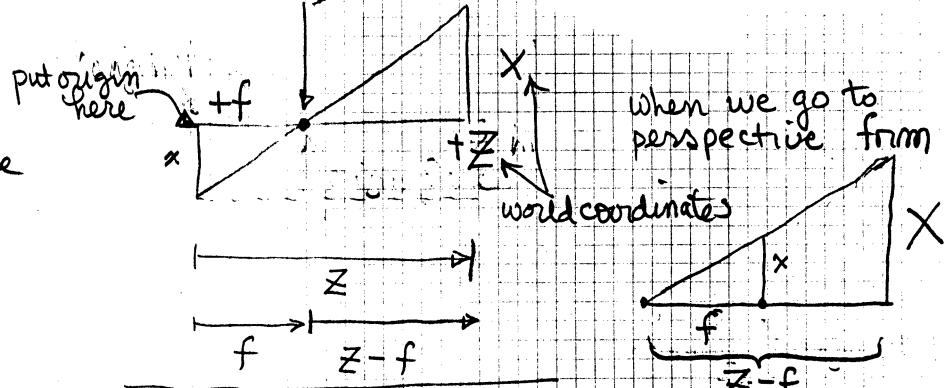 put origin
here
+f
x
X
+Z
world coordinates
Z
f
Z-f
when we go to
perspective form
x
X
f
Z-f